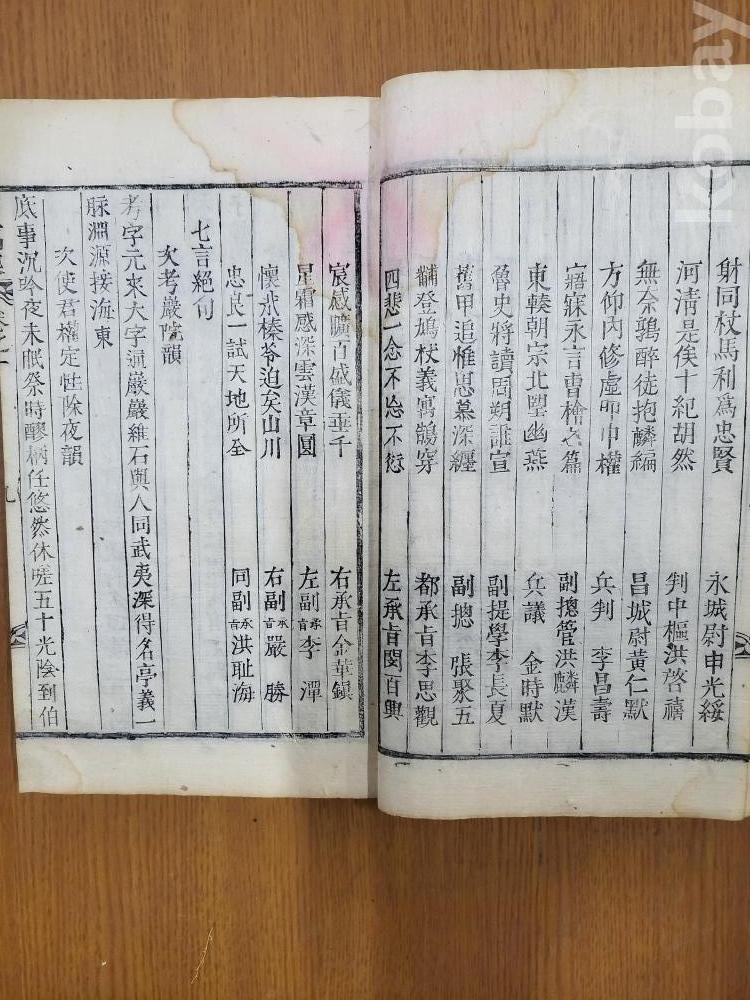 財同杖馬利爲忠賢 永城尉申光綏
河淸是俟十紀胡然 判中樞洪啓禧
無奈鶉醉徒抱麟編 昌城尉黃仁默
方仰內修虛 申權 兵判 李昌壽
寤寐永言曹檜之篇 副摠管洪麟漢
東輳朝宗北望幽燕 兵議 金時默
魯史將讀周朔誰宣 副提學李長夏
舊甲追惟思慕深纏 副摠 張聚五
黼登鳩杖義寓鶻穿 都承旨李思觀
四悲一念不忘不愆 左承旨閔百興
宸感曠百盛儀垂千 右承旨金華鎭
星霜感深雲漢章圓 左副承旨李潭
懷我榛苓迫矣山川 右副承旨嚴勝
忠良一試天地所全 同副承旨洪趾海
七言絕句
次考巖院韻
考字元來大字通巖巖維石與人同武夷深得名亭義一
脉淵源接海東
次使君權定性除夜韻
底事沉吟夜未眠祭時醪柄任悠然休嗟五十光陰到伯
九
kobay